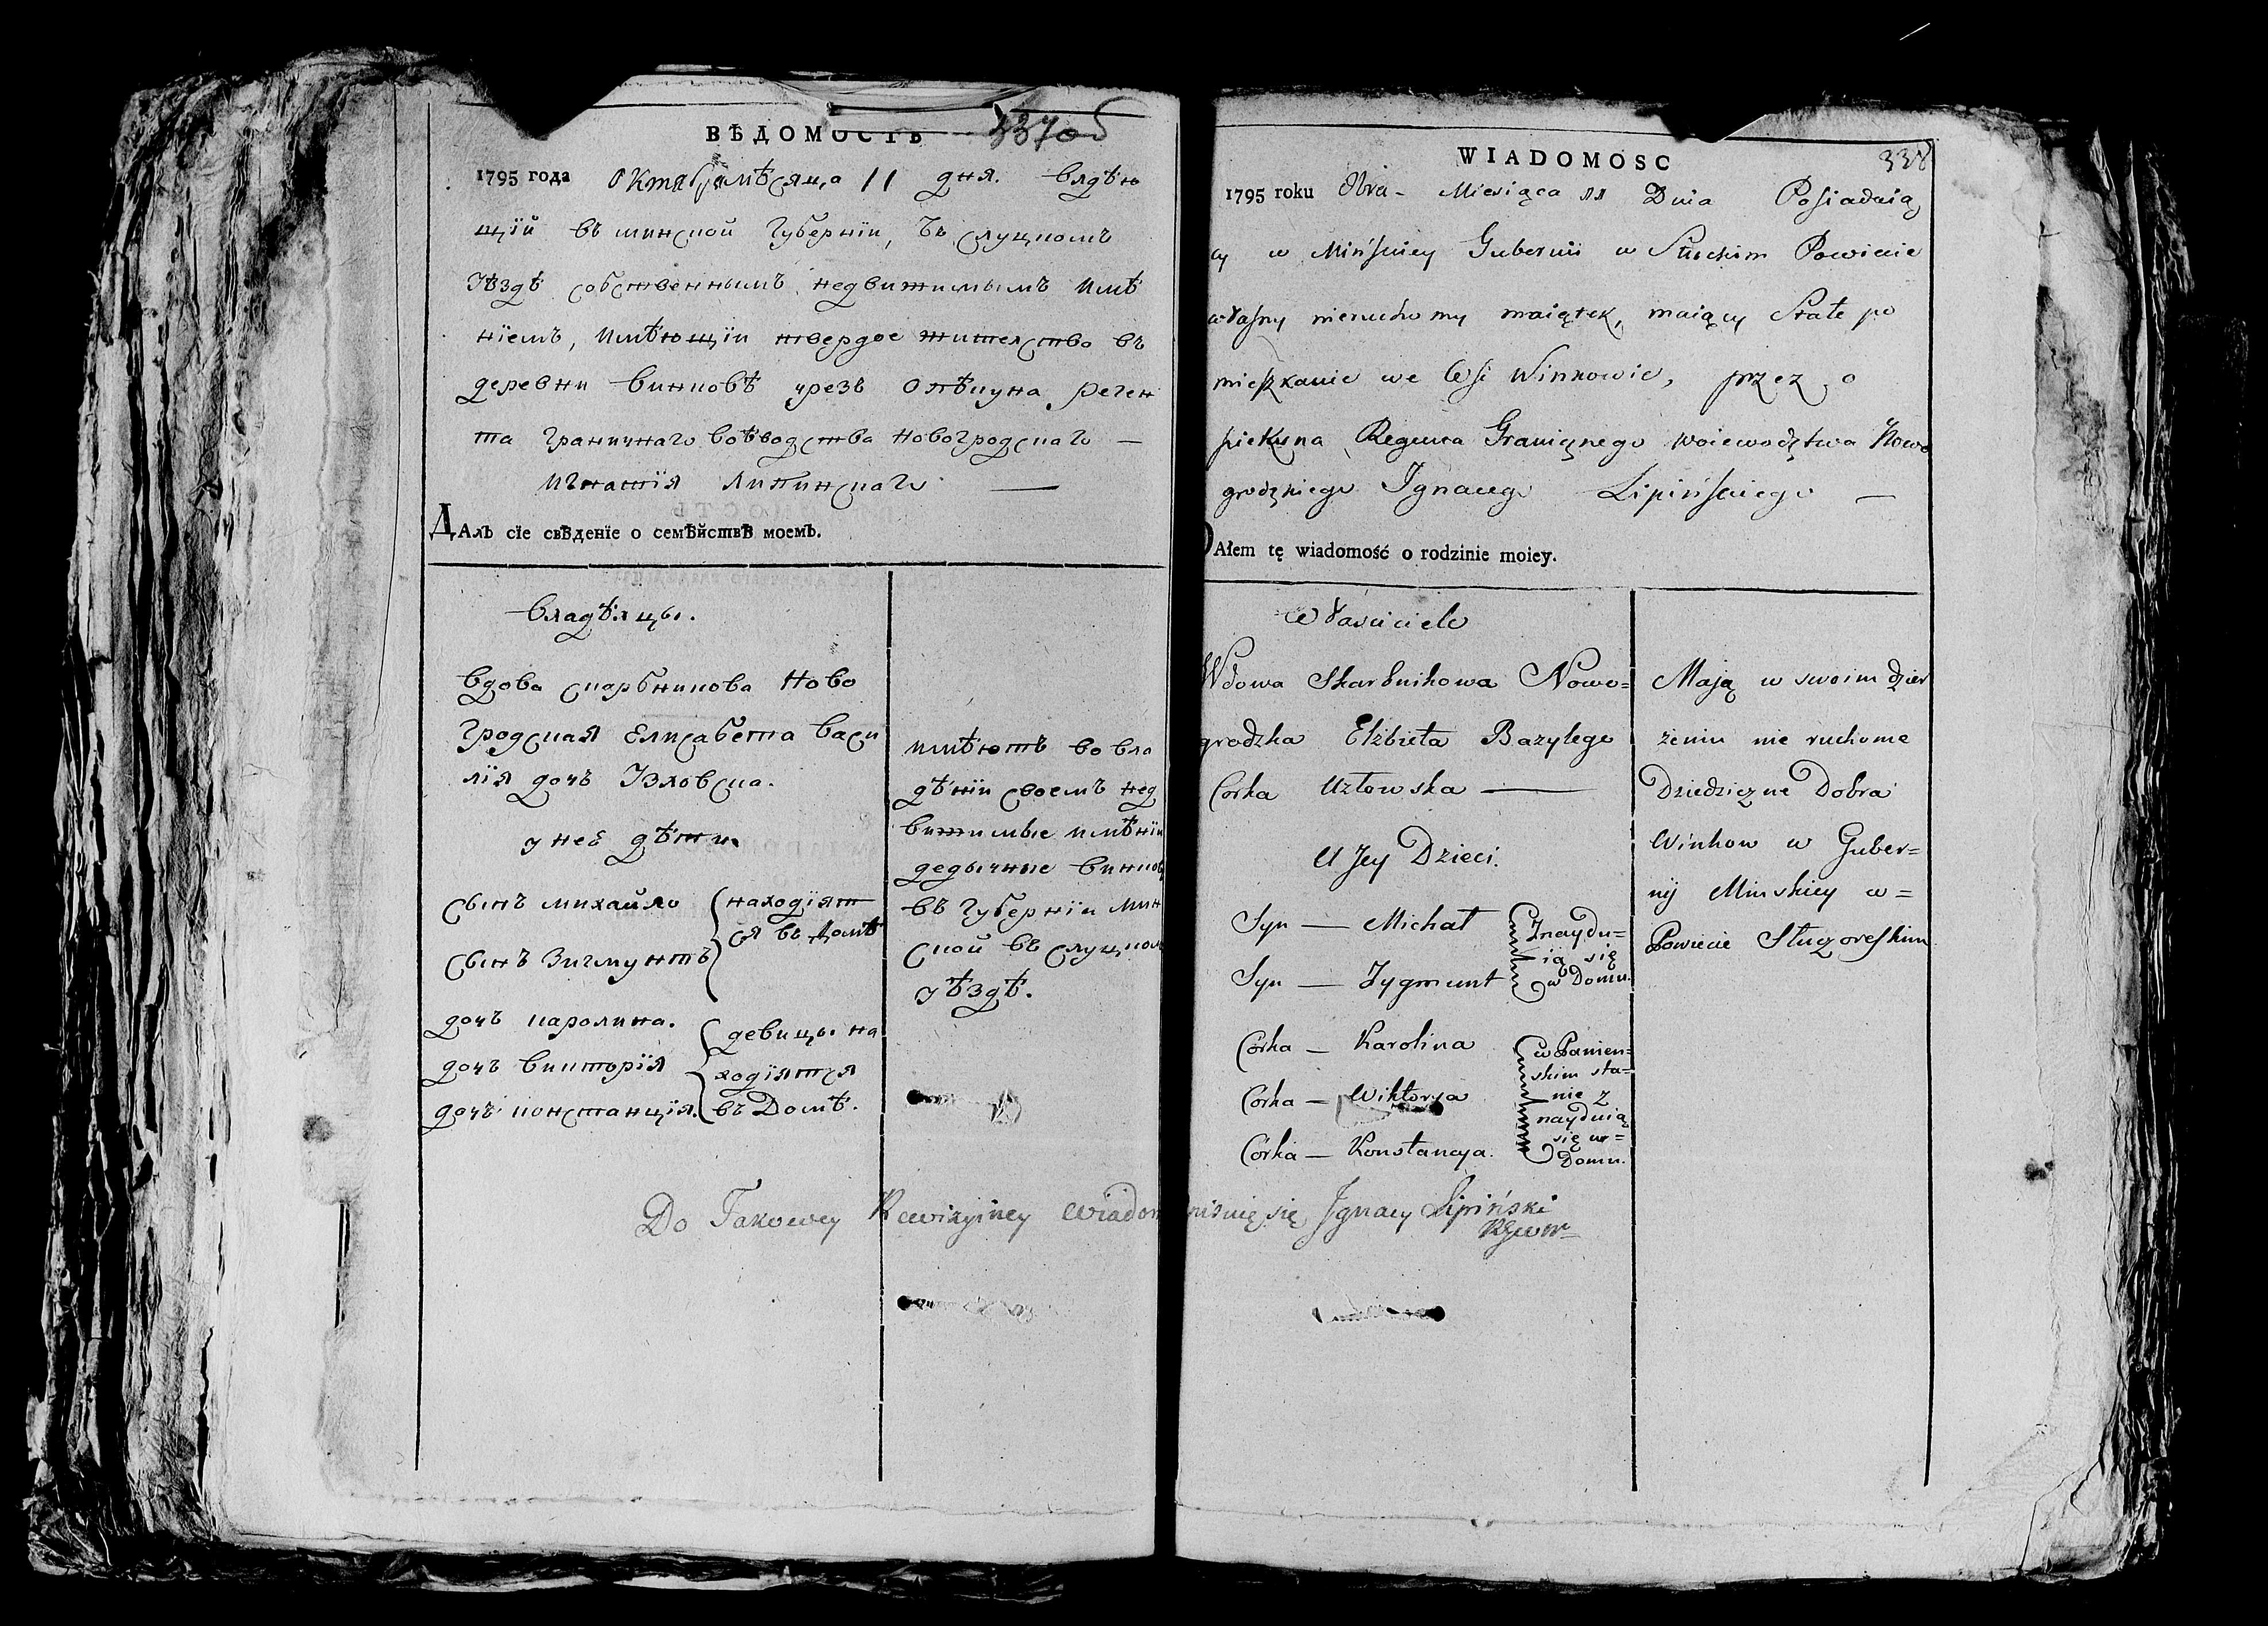 ВѢДОМОСТЬ 337об
1795 года Октября мѣсяца 11 дня. владѣю
щїй въ минской Губернїи, въ слуцкомъ
уѣздѣ собственнымъ недвижимымъ имѣ
нїемъ, имѣющїи твердое жителство въ
деревни Винковѣ чрезъ опѣкуна реген
та граничнаго воѣводства новогродскаго —
игнатїя липинскаго —
ДАлъ сїе свѣденїе о семѣйствѣ моемъ.
владѣлцы.
вдова скарбникова ново
гродская елисабета васи
лїя дочь Узловска.
у неё дѣти
сынъ михайло находїят
ся въ домѣ
сынъ Зигмунтъ
дочь каролина. девицы на
дочь викторїя ходїятся
дочь констанцїя. въ домѣ.
имѣютъ во вла
дѣнїи своемъ нед
вижимые имѣнїи
дедычные винков
въ губернїи мин
ской въ слуцком
уѣздѣ.
WIADOMOSC 338
1795 roku 8bra - Miesiąca 11 Dnia Posiadaią
cy w Mińskiey Gubernii w Słuckim Powiecie
własny nieruchomy maiątek, maiący Stałe po
mieszkanie we Wsi Winkowie, przez o
piekuna Regenta Granicznego woiewodztwa Nowo
grodzkiego Ignacego Lipińskiego —
DAłem tę wiadomość o rodzinie moiey.
Właściciele
Wdowa Skarbnikowa Nowo=
grodzka Elżbieta Bazylego
Corka Uzłowska —
U Jey Dzieci.
Syn — Michał Znaydu=
ią się
Syn — Zygmunt w Domu.
Córka — Karolina w Panień=
skim sta=
Córka — Wiktorya nie z
nayduią
się w=
Córka — Konstancya. Domu.
Mają w swoim dzier
żeniu nie ruchome
Dziedziczne Dobra
Winkow w Guber=
nij Minskiey w=
Powiecie Słuzoreskim
Do Takowey Rewizyiney Wiadom pisuię się Ignacy Lipiński